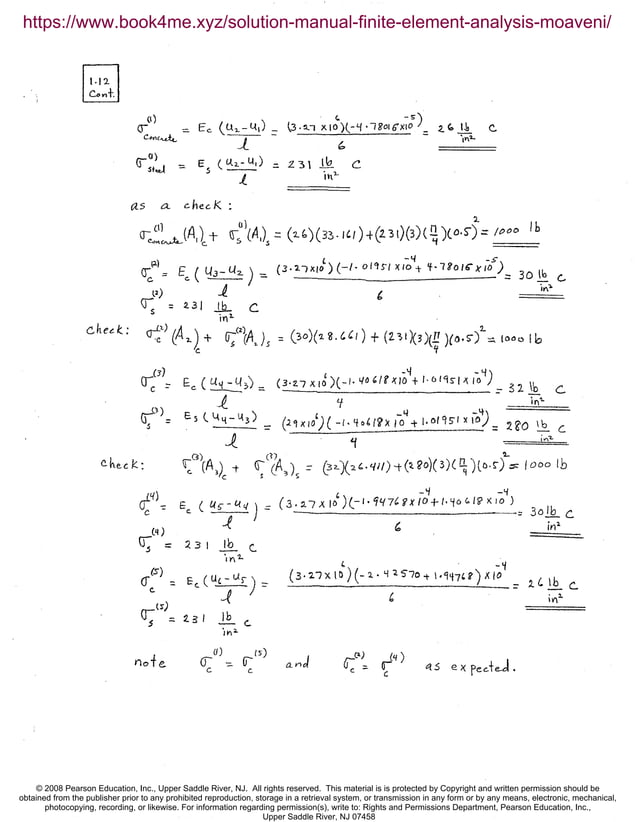 https://www.book4me.xyz/solution-manual-finite-element-analysis-moaveni/
1.12
Cont.
σ_concrete^(1) = E_c (u₂-u₁)/l = (3.27×10^6)(-4.78016×10^-5)/6 = 26 lb/in² C
σ_steel^(1) = E_s (u₂-u₁)/l = 231 lb/in² C
as a check:
σ_concrete^(1) (A₁)_c + σ_s^(1) (A₁)_s = (26)(33.161)+(231)(3)(π/4)(0.5)² = 1000 lb
σ_c^(2) = E_c (u₃-u₂)/l = (3.27×10^6)(-1.01951×10^-4 + 4.78016×10^-5)/6 = 30 lb/in² C
σ_s^(2) = 231 lb/in² C
check: σ_c^(2) (A₂)_c + σ_s^(2) (A₂)_s = (30)(28.661) + (231)(3)(π/4)(0.5)² = 1000 lb
σ_c^(3) = E_c (u₄-u₃)/l = (3.27×10^6)(-1.40618×10^-4 + 1.01951×10^-4)/4 = 32 lb/in² C
σ_s^(3) = E_s (u₄-u₃)/l = (29×10^6)(-1.40618×10^-4 + 1.01951×10^-4)/4 = 280 lb/in² C
check: σ_c^(3) (A₃)_c + σ_s^(3) (A₃)_s = (32)(26.411)+(280)(3)(π/4)(0.5)² = 1000 lb
σ_c^(4) = E_c (u₅-u₄)/l = (3.27×10^6)(-1.94768×10^-4 + 1.40618×10^-4)/6 = 30 lb/in² C
σ_s^(4) = 231 lb/in² C
σ_c^(5) = E_c (u₆-u₅)/l = (3.27×10^6)(-2.42570+1.94768)×10^-4/6 = 26 lb/in² C
σ_s^(5) = 231 lb/in² C
note σ_c^(1) = σ_c^(5) and σ_c^(2) = σ_c^(4) as expected.
© 2008 Pearson Education, Inc., Upper Saddle River, NJ. All rights reserved. This material is is protected by Copyright and written permission should be
obtained from the publisher prior to any prohibited reproduction, storage in a retrieval system, or transmission in any form or by any means, electronic, mechanical,
photocopying, recording, or likewise. For information regarding permission(s), write to: Rights and Permissions Department, Pearson Education, Inc.,
Upper Saddle River, NJ 07458